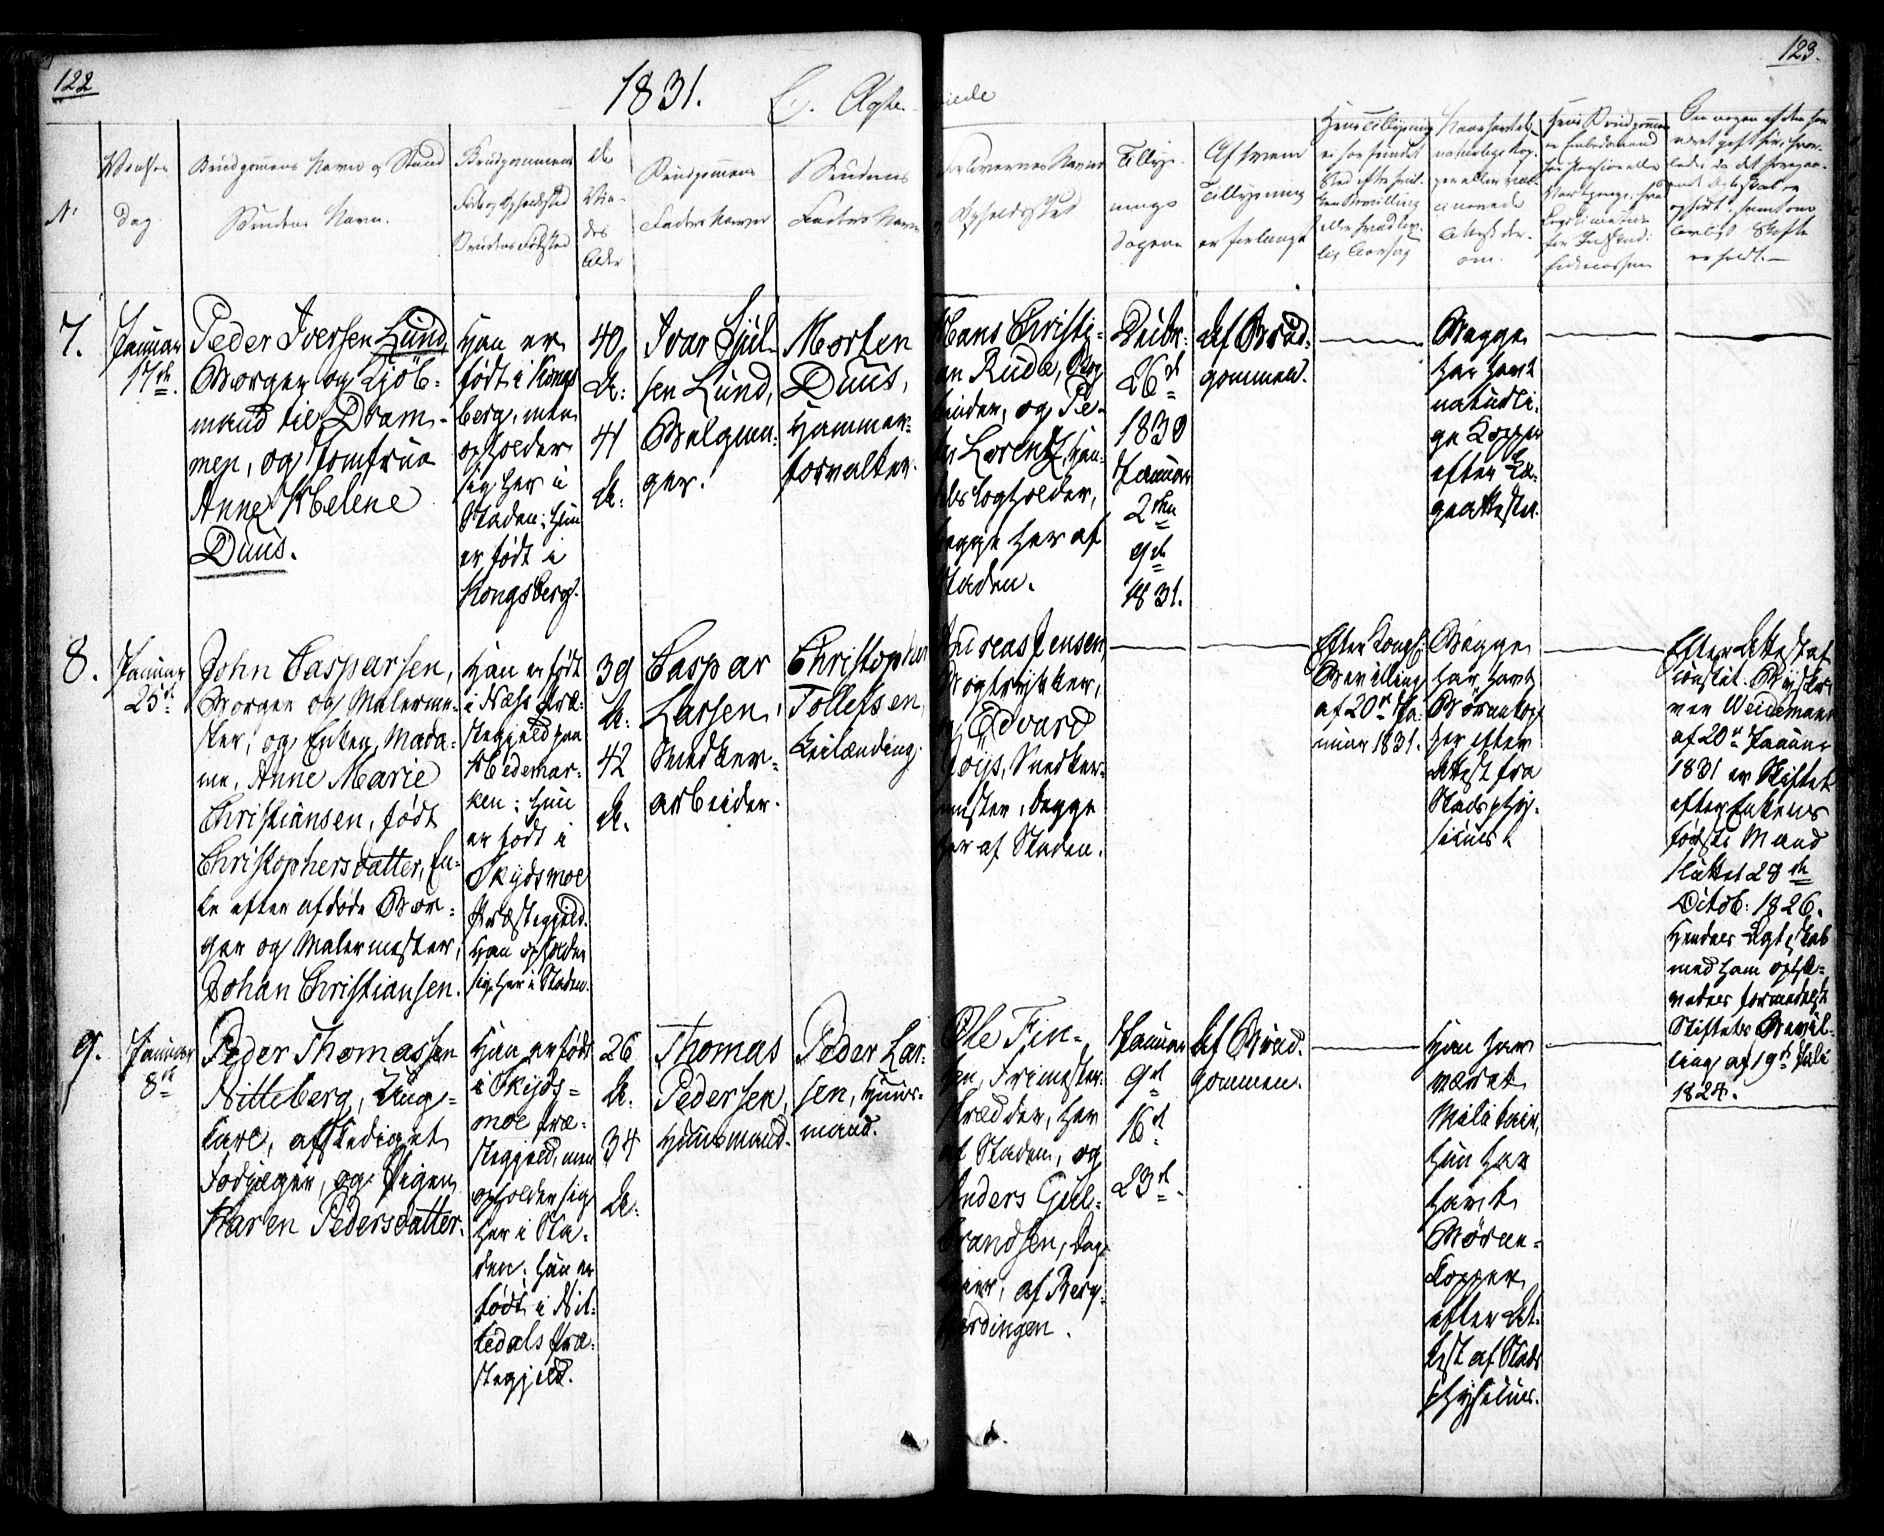 122
1831.
C. Ægte-
viede
123.
No
Vielses
Dag
Brudgommens Navn og Stand
Brudens Navn.
Brudgommens
Føde og Opholdssted
Brudens Fødested
De
Vie-
des
Alder
Brudgommens
Faders Navn
Brudens
Faders Navn
Forlovernes Navne
Opholdssted
Tillys-
nings
dagene
Af hvem
Tillysning
er forlangt
7.
Januar
17de
Peder Iversen Lund,
Borger og Kjöb-
mand til Dram-
men, og Jomfrue
Anne Helene
Duus.
Han er
født i Kongs
berg, men
opholder
sig her i
Staden; hun
er født i
Kongsberg.
40
A:
41
A:
Ivar Sjul-
sen Lund,
Morten
Duus,
Hammer-
forvalter.
Hans Christi-
an Rude,
og Pe-
ter Lorentz, Han-
begge her af
Staden.
Decbr:
26de
1830
Januar
2den
9de
1831.
Af Brud-
gommen.
Begge
har havt
naturli-
ge Kopper
efter La-
geattester.
8.
Januar
25de
John Caspersen,
Borger og Malerme-
ster, og Enken, Mada-
me, Anne Marie
Christiansen, født
Christophersdatter, En-
ke efter afdøde Bor-
ger og Malermester,
Johan Christiansen.
Han er født
i Næss Præ-
stegjeld paa
Hedemar-
ken; hun
er født i
Skydsmoe
Præstegjeld.
Han opholder
sig her i Staden.
39
A:
42
A:
Caspar
Larsen,
Snedker-
arbeider.
Christopher
Tollefsen,
Leilænding.
Andreas Jensen,
Bogtrykker,
og Edvard
Snedker-
mester, begge
her af Staden.
Efter Kongl:
Bevilling
af 20de Ja-
nuar 1831.
Begge
har havt
Børnekop-
per efter
Attest fra
Stadsphy-
sicus.
Efter Attest af
constit. Byskri-
ver Weidemann
af 20de Januar
1831 er Skiftet
efter Enkens
første Mand
sluttet 28de
Octob: 1826.
Hendes Ægteskab
med ham ophæ-
vedes formedelst
Stiftets Bevil-
ling af 19de Juli
1824.
9.
Januar
8de
Peder Thomassen
Nitteberg, Ung-
karl, afskediget
Fodjæger, og Pigen
Karen Pedersdatter.
Han er født
i Skyds-
moe Præ-
stegjeld, men
opholder sig
her i Sta-
den; hun er
født i Nit-
tedals Præ-
stegjeld.
26
A:
34
A:
Thomas
Pedersen,
Huusmand.
Peder Lar-
sen, Huus-
mand.
Ole Fin-
sen, Frimester
Skrædder, her
af Staden, og
Anders Gul-
brandsen, Dag-
leier, af Berg-
værdingen.
Januar
9de
16de
23de
Af Brud-
gommen.
Han har
været
Militair,
hun har
havt
Børne-
kopper
efter At-
test af Stads
physicus.